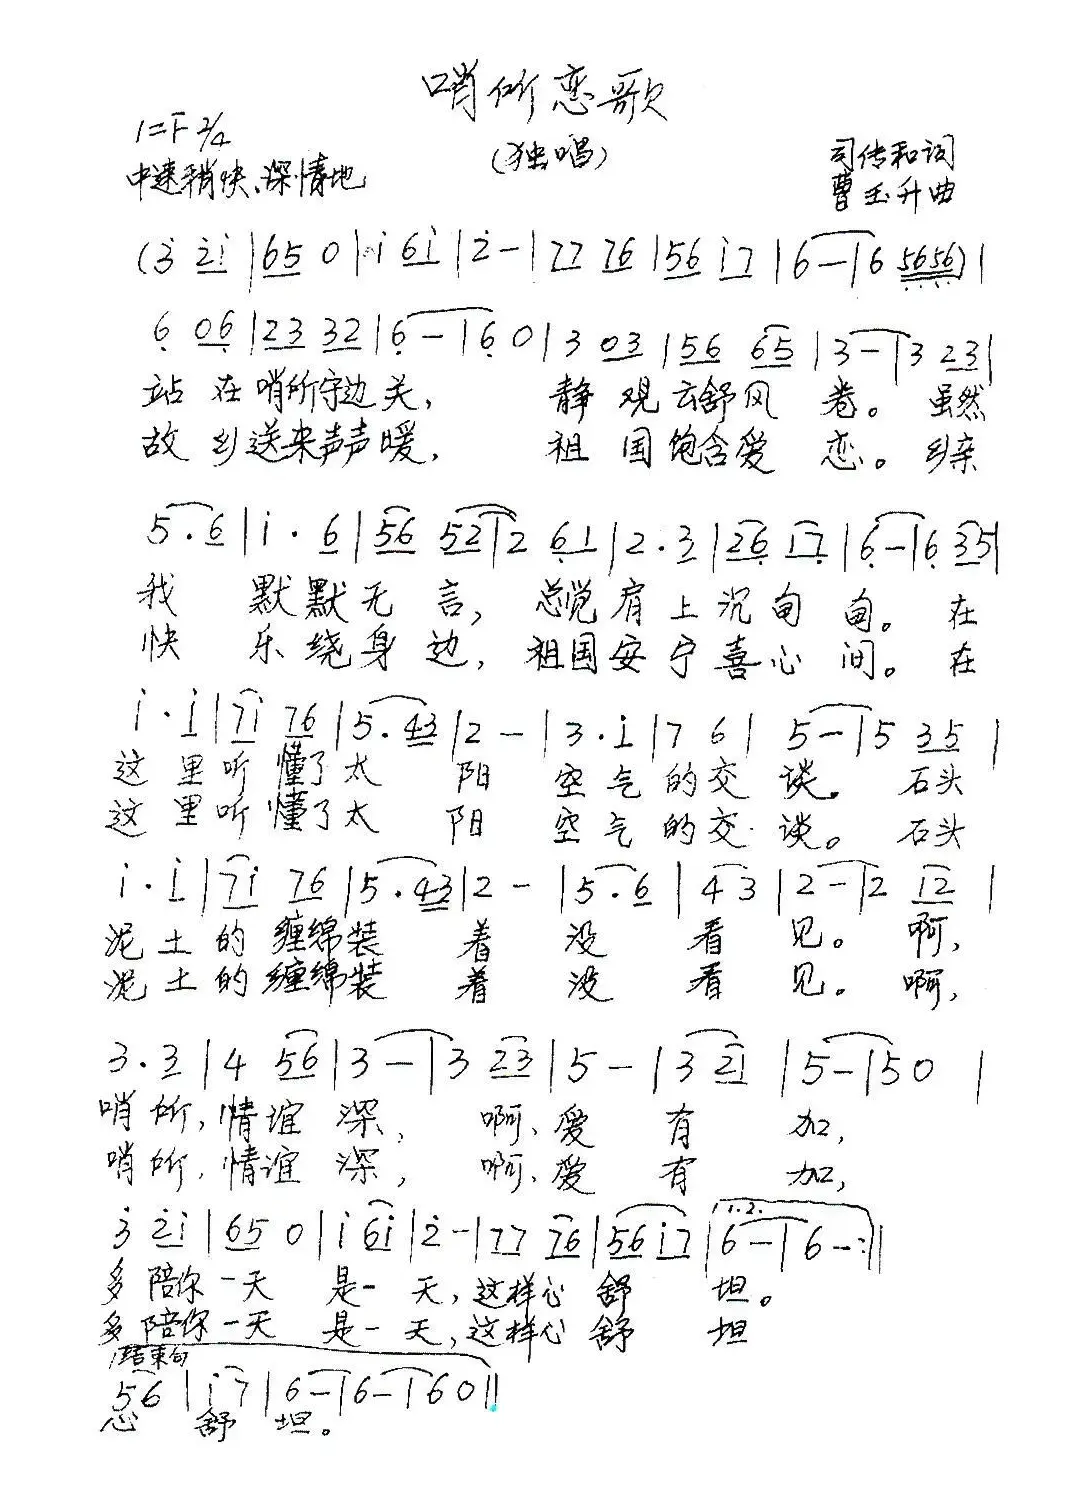 哨所恋歌
1=F 2/4
(独唱)
中速稍快、深情地
司传和词
曹玉升曲
(3̇ 2̇1̇ | 65 0 | 1̇ 61̇ | 2̇ - | 77 76 | 56 1̇7 | 6 - | 6 5656) |
6̣ 06̣ | 23 32 | 6̣ - | 6̣ 0 | 3 03 | 56 65 | 3 - | 3 23 |
站在哨所守边关， 静观云舒风卷。虽然
故乡送来声声暖， 祖国饱含爱恋。乡亲
5.6 | 1̇.6 | 56 52 | 2 6̣1 | 2.3 | 26̣ 17̣ | 6̣ - | 6̣ 35 |
我 默默无言，总觉肩上沉甸甸。在
快 乐绕身边，祖国安宁喜心间。在
1̇.1̇ | 71̇ 76 | 5.43 | 2 - | 3.1̇ | 7 6 | 5 - | 5 35 |
这里听懂了太 阳 空气的交谈。石头
这里听懂了太 阳 空气的交谈。石头
1̇.1̇ | 71̇ 76 | 5.43 | 2 - | 5.6 | 4 3 | 2 - | 2 12 |
泥土的缠绵装 着 没 看 见。啊，
泥土的缠绵装 着 没 看 见。啊，
3.3 | 4 56 | 3 - | 3 23 | 5 - | 3 21 | 5 - | 5 0 |
哨所，情谊深， 啊、爱 有 加，
哨所，情谊深， 啊、爱 有 加，
1.2.
3̇ 2̇1̇ | 65 0 | 1̇ 61̇ | 2̇ - | 77 76 | 56 1̇7 | 6 - | 6 - :||
多陪你一天 是一天，这样心舒 坦。
多陪你一天 是一天，这样心舒 坦
结束句
56 | 1̇7 | 6 - | 6 - | 6 0 ||
心 舒 坦。